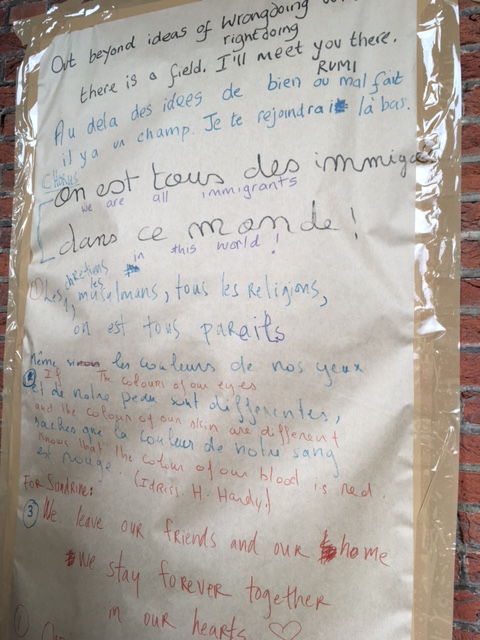 Out beyond ideas of wrongdoing
rightdoing
there is a field. I'll meet you there.
RUMI
Au dela des idées de bien ou mal fait
il y a un champ. Je te rejoindrai là bas.
CHORUS
on est tous des immigré
we are all immigrants
dans ce monde!
in this world!
chrétiens les
① Les, muselmans, tous les religions,
on est tous pareils
même si les couleurs de nos yeux
② If The colours of our eyes
et de notre peau sont differentes,
and the colour of our skin are different
saches que la couleur de notre sang
Knows that the colour of our blood is red.
est rouge. (Idriss H-Hardy!)
For Sandrine:
③ We leave our friends and our home
We stay forever together
in our hearts ♡